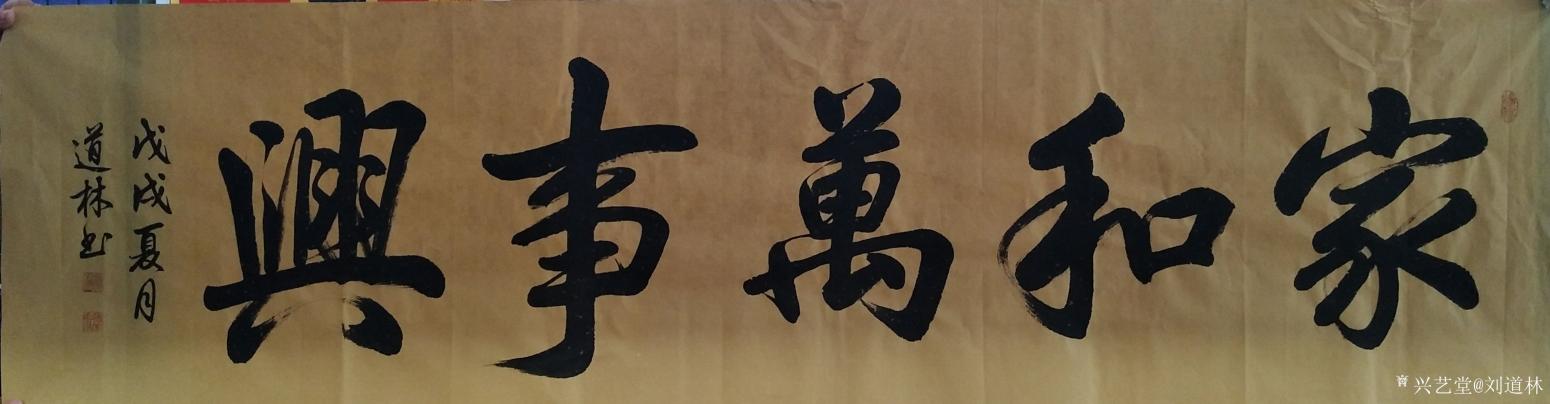 家和萬事興
戊戌夏月
道林书
兴艺堂@刘道林